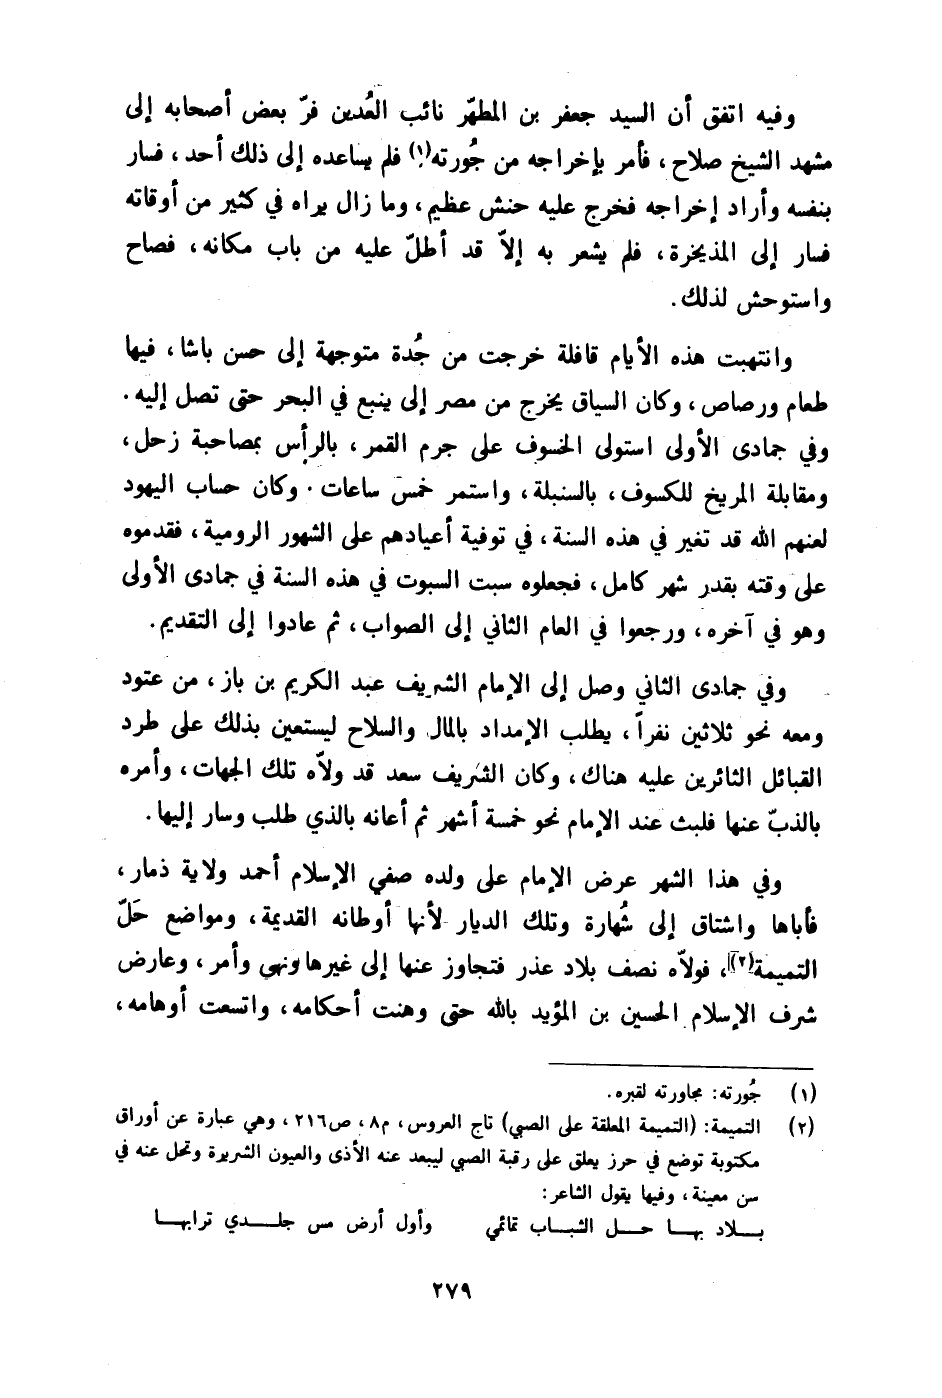 وفيه اتفق أن السيد جعفر بن المطهّر نائب العُدين فرّ بعض أصحابه إلى
مشهد الشيخ صلاح، فأمر بإخراجه من جُورته(١) فلم يساعده إلى ذلك أحد، فسار
بنفسه وأراد إخراجه فخرج عليه حنش عظيم، وما زال يراه في كثير من أوقاته
فسار إلى المذيخرة، فلم يشعر به إلاّ قد أطلّ عليه من باب مكانه، فصاح
واستوحش لذلك.
وانتهبت هذه الأيام قافلة خرجت من جُدة متوجهة إلى حسن باشا، فيها
طعام ورصاص، وكان السياق يخرج من مصر إلى ينبع في البحر حتى تصل إليه.
وفي جمادى الأولى استولى الخسوف على جرم القمر، بالرأس بمصاحبة زحل،
ومقابلة المريخ للكسوف، بالسنبلة، واستمر خمس ساعات. وكان حساب اليهود
لعنهم الله قد تغير في هذه السنة، في توفية أعيادهم على الشهور الرومية، فقدموه
على وقته بقدر شهر كامل، فجعلوه سبت السبوت في هذه السنة في جمادى الأولى
وهو في آخره، ورجعوا في العام الثاني إلى الصواب، ثم عادوا إلى التقديم.
وفي جمادى الثاني وصل إلى الإمام الشريف عبد الكريم بن باز، من عتود
ومعه نحو ثلاثين نفراً، يطلب الإمداد بالمال والسلاح ليستعين بذلك على طرد
القبائل الثائرين عليه هناك، وكان الشريف سعد قد ولاّه تلك الجهات، وأمره
بالذبّ عنها فلبث عند الإمام نحو خمسة أشهر ثم أعانه بالذي طلب وسار إليها.
وفي هذا الشهر عرض الإمام على ولده صفي الإسلام أحمد ولاية ذمار،
فأباها واشتاق إلى شُهارة وتلك الديار لأنها أوطانه القديمة، ومواضع حَلّ
التميمة(٢)، فولاّه نصف بلاد عذر فتجاوز عنها إلى غيرها ونهى وأمر، وعارض
شرف الإسلام الحسين بن المؤيد بالله حتى وهنت أحكامه، واتسعت أوهامه،
(١) جُورته: مجاورته لقبره.
(٢) التميمة: (التميمة المعلقة على الصبي) تاج العروس، م٨، ص٢١٦، وهي عبارة عن أوراق
مكتوبة توضع في حرز يعلق على رقبة الصبي ليبعد عنه الأذى والعيون الشريرة وتحل عنه في
سن معينة، وفيها يقول الشاعر:
بـلاد بهـا حـل الشبـاب تمائمي وأول أرض مس جلـدي ترابهـا
٢٧٩